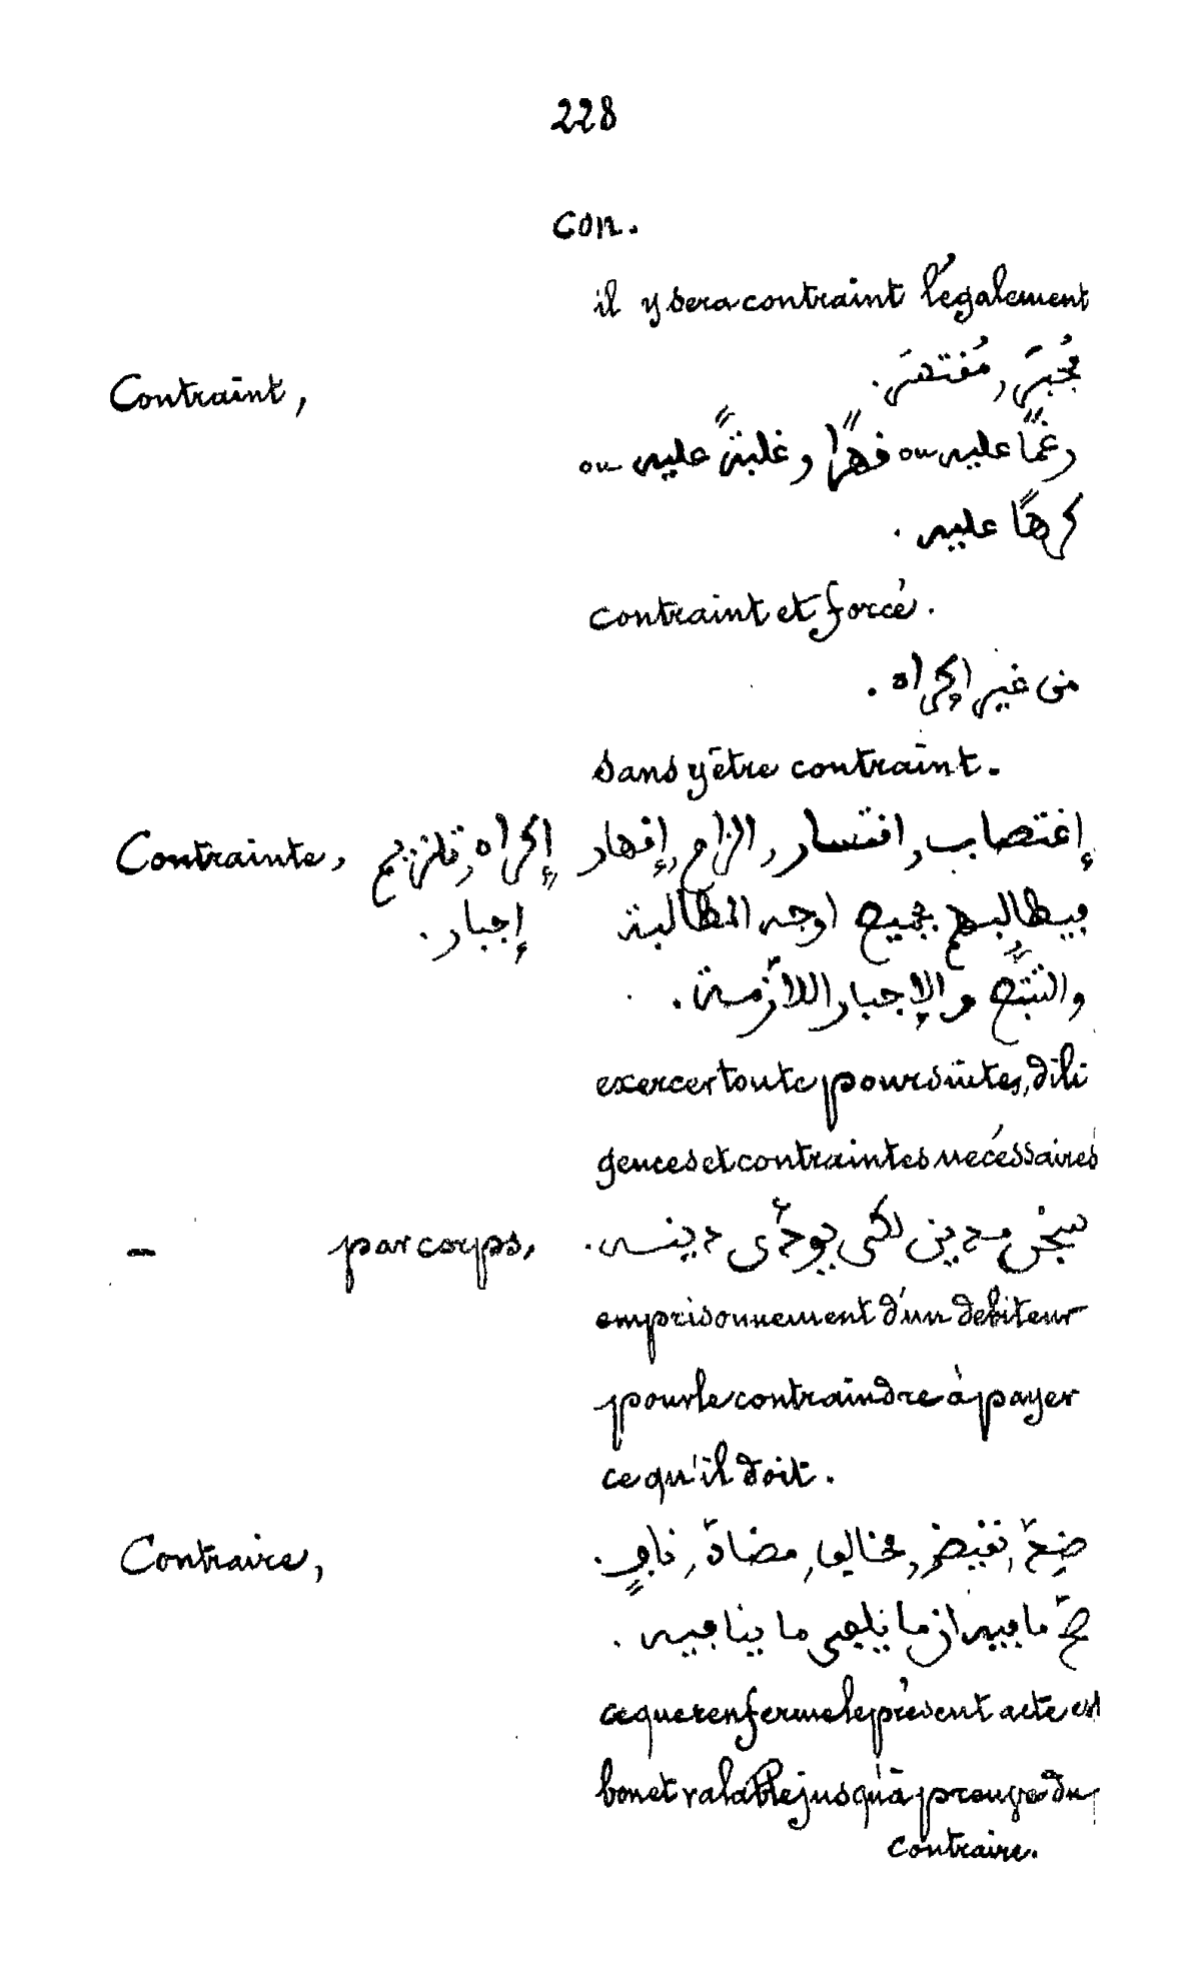 228
con.
il y sera contraint légalement
Contraint, مُجبَر, مُفتهَر.
رغمًا عليه ou قهرًا وغلبةً عليه ou
كرهًا عليه.
contraint et forcé.
من غير اكراه.
sans y être contraint.
Contrainte, إكراه, تلزيم إغتصاب, افتسار, الزام, إفهار
إجبار. فيطالبهم بجميع اوجه المطالبة
والتتبّع والإجبار اللازمة.
exercer toute poursuites, dili
gences et contraintes nécessaires
— par corps, سجن مدين لكي يودّى دينه.
emprisonnement d'un debiteur
pour le contraindre à payer
ce qu'il doit.
Contraire, ضدّ, نقيض, مخالف, مضادّ, نافٍ.
صحّ ما فيه ان ما يلفى ما ينافيه.
ce que renferme le présent acte est
bon et valable jusqu'à preuve du
contraire.